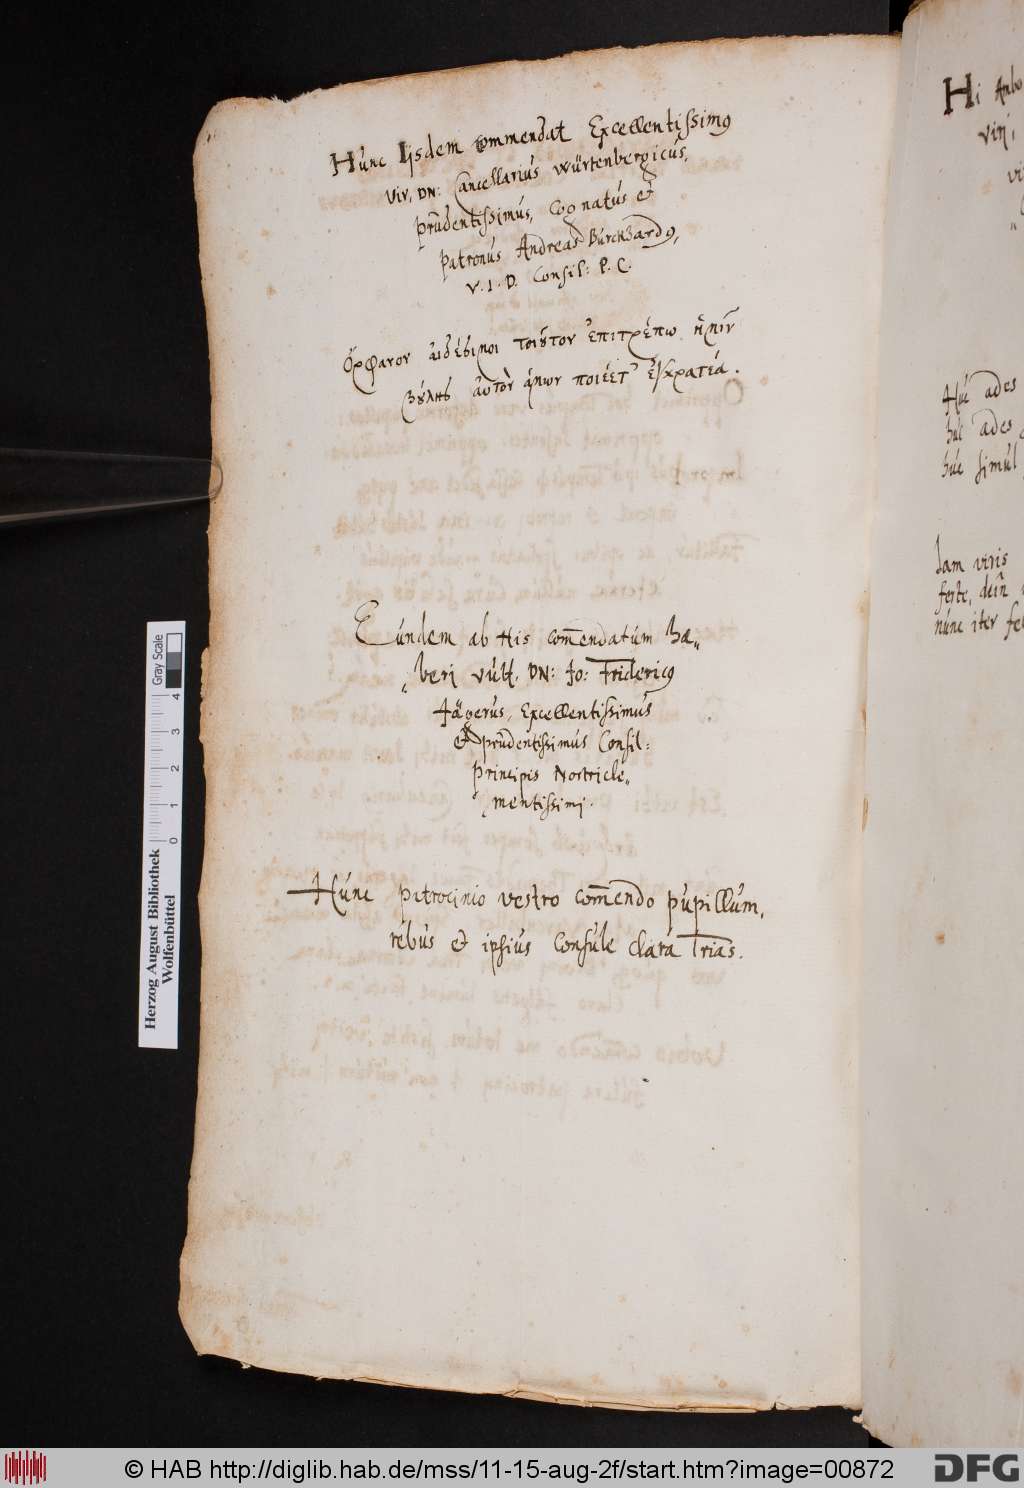 Hunc Iisdem commendat Excellentissimꝰ
Vir, DN: Cancellarius Würtenbergicus,
prudentissimus, Cognatus et
Patronus Andreas Burckhardꝰ,
V. I. D. Consil: P. C.
Ὀρφανον αἰδέσιμοι τοιοῦτον ἐπιτρέπω
αὐτὸν
Eundem ab His com̄endatum hæ„
„beri vult, DN: Jo: Fridericꝰ
Jägerus, Excellentissimus
et prudentissimus Consil:
principis Nostri cle„
„mentissimj.
Hunc patrocinio vestro com̄endo pupillum,
rebus et ipsius Consule clara Trias.
Hi
Viri,
Huc ades
huc ades
huc simul
Jam viris
ferte, dein
nunc iter
Herzog August Bibliothek
Wolfenbüttel
0 1 2 3 4
Gray Scale
© HAB http://diglib.hab.de/mss/11-15-aug-2f/start.htm?image=00872
DFG